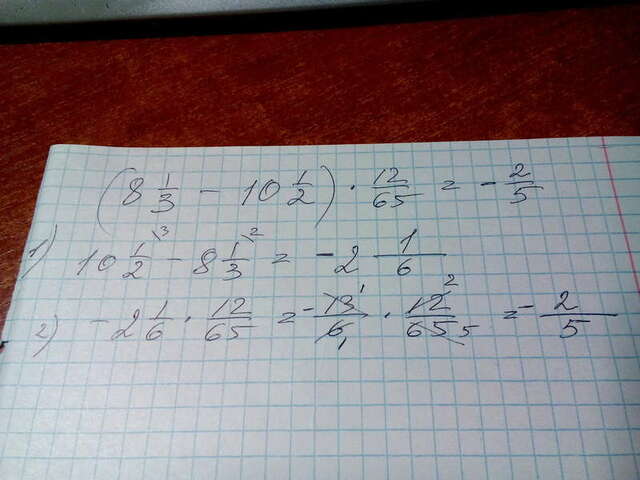 (8 1/3 - 10 1/2) · 12/65 = - 2/5
1) 10 1/2 \3 - 8 1/3 \2 = - 2 1/6
2) - 2 1/6 · 12/65 = - 13 1/6 1 · 12 2/65 5 = - 2/5